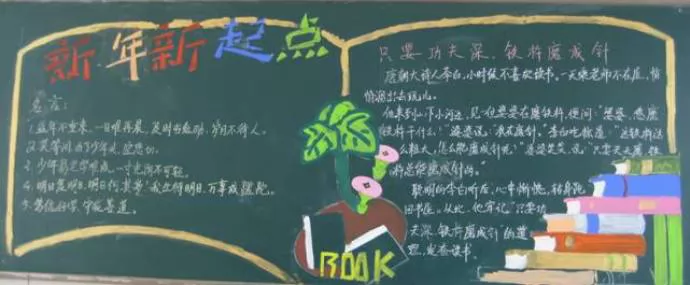 新年新起点
名言:
1.盛年不重来,一日难再晨,及时当勉励,岁月不待人。
2.莫等闲,白了少年头,空悲切。
3.少年易老学难成,一寸光阴不可轻。
4.明日复明日,明日何其多!我生待明日,万事成蹉跎。
只要功夫深,铁杵磨成针
唐朝大诗人李白,小时候不喜欢读书。一天乘老师不在屋,悄
悄溜出去玩儿。
他来到山下小河边,见一老婆婆在磨铁杵,便问:“婆婆,您磨
铁杵干什么!”婆婆说:“我在磨针。”李白吃惊道:“这铁杵这
么粗大,怎么能磨成针呢!”婆婆笑笑说:“只要天天磨,铁
杵总能磨成针的。”
聪明的李白听后,心中惭愧,转身跑
回书屋。从此,他牢记“只要功
夫深,铁杵磨成针”的道
理,发奋读书。
BOOK